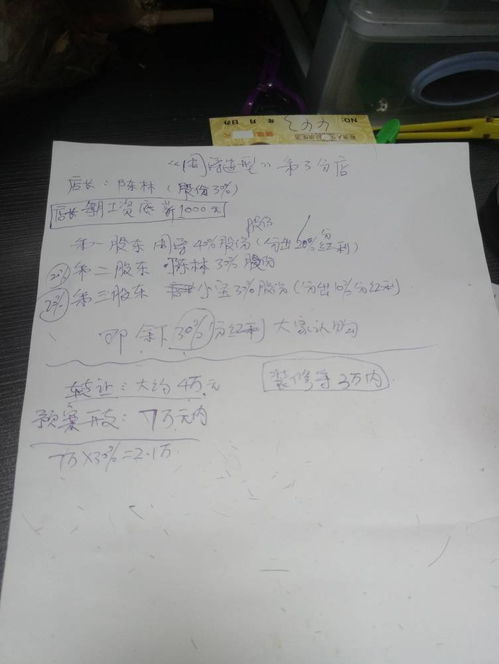 NO:
年 月 日
《周涛造型》第3分店
店长:陈林(股份3%)
店长每月工资底薪1000元
股份
第一股东 周涛40%股份(分出20%分红利)
20% 第二股东 陈林3%股份
20% 第三股东 小宝3%股份(分出10%分红利)
即余下30%分红利 大家认购
转让:大约4万元 装修等3万内
预案开支:7万元内
7万×30%=2.1万